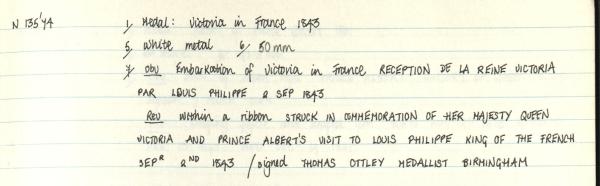 N 135'74 1, Medal: Victoria in France 1843
5, White metal 6, 50 mm
7, Obv Embarkation of Victoria in France RECEPTION DE LA REINE VICTORIA
PAR LOUIS PHILIPPE 2 SEP 1843
Rev within a ribbon STRUCK IN COMMEMORATION OF HER MAJESTY QUEEN
VICTORIA AND PRINCE ALBERT'S VISIT TO LOUIS PHILIPPE KING OF THE FRENCH
SEPR 2ND 1843 / signed THOMAS OTTLEY MEDALLIST BIRMINGHAM